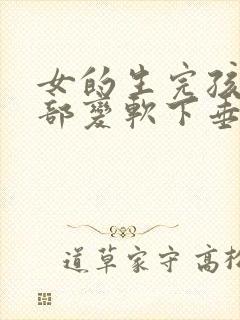 女的生完孩
部變軟下垂
道草家守 高松